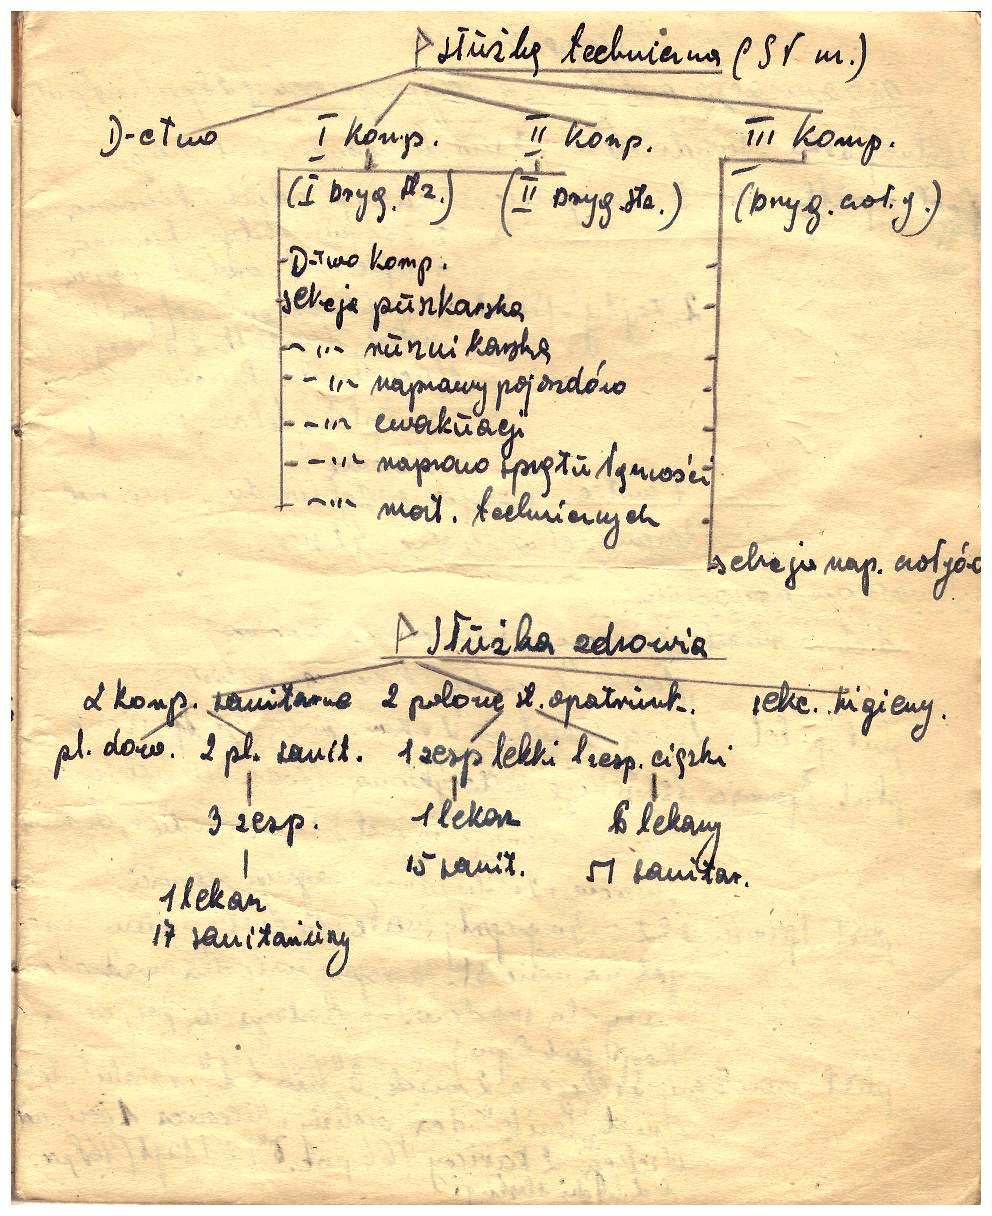 Służba techniczna
D-ctwo I Komp. II Komp. III Komp.
(I bryg. stz.) (II bryg. stz.) (bryg. czołg.)
D-two komp.
sekcja puszkarska
-"- rusznikarska
-"- naprawy pojazdów
-"- ewakuacji
-"- napraw sprzętu łączności
-"- mat. technicznych
sekcja nap. czołgów
Służba zdrowia
2 komp. sanitarne 2 polowe st. opatrunk. sekc. higieny.
pl. dow. 2 pl. sanit. 1 zesp lekki 1 zesp. ciężki
3 zesp. 1 lekarz 6 lekarzy
15 sanit. 51 sanitar.
1 lekarz
17 sanitariuszy